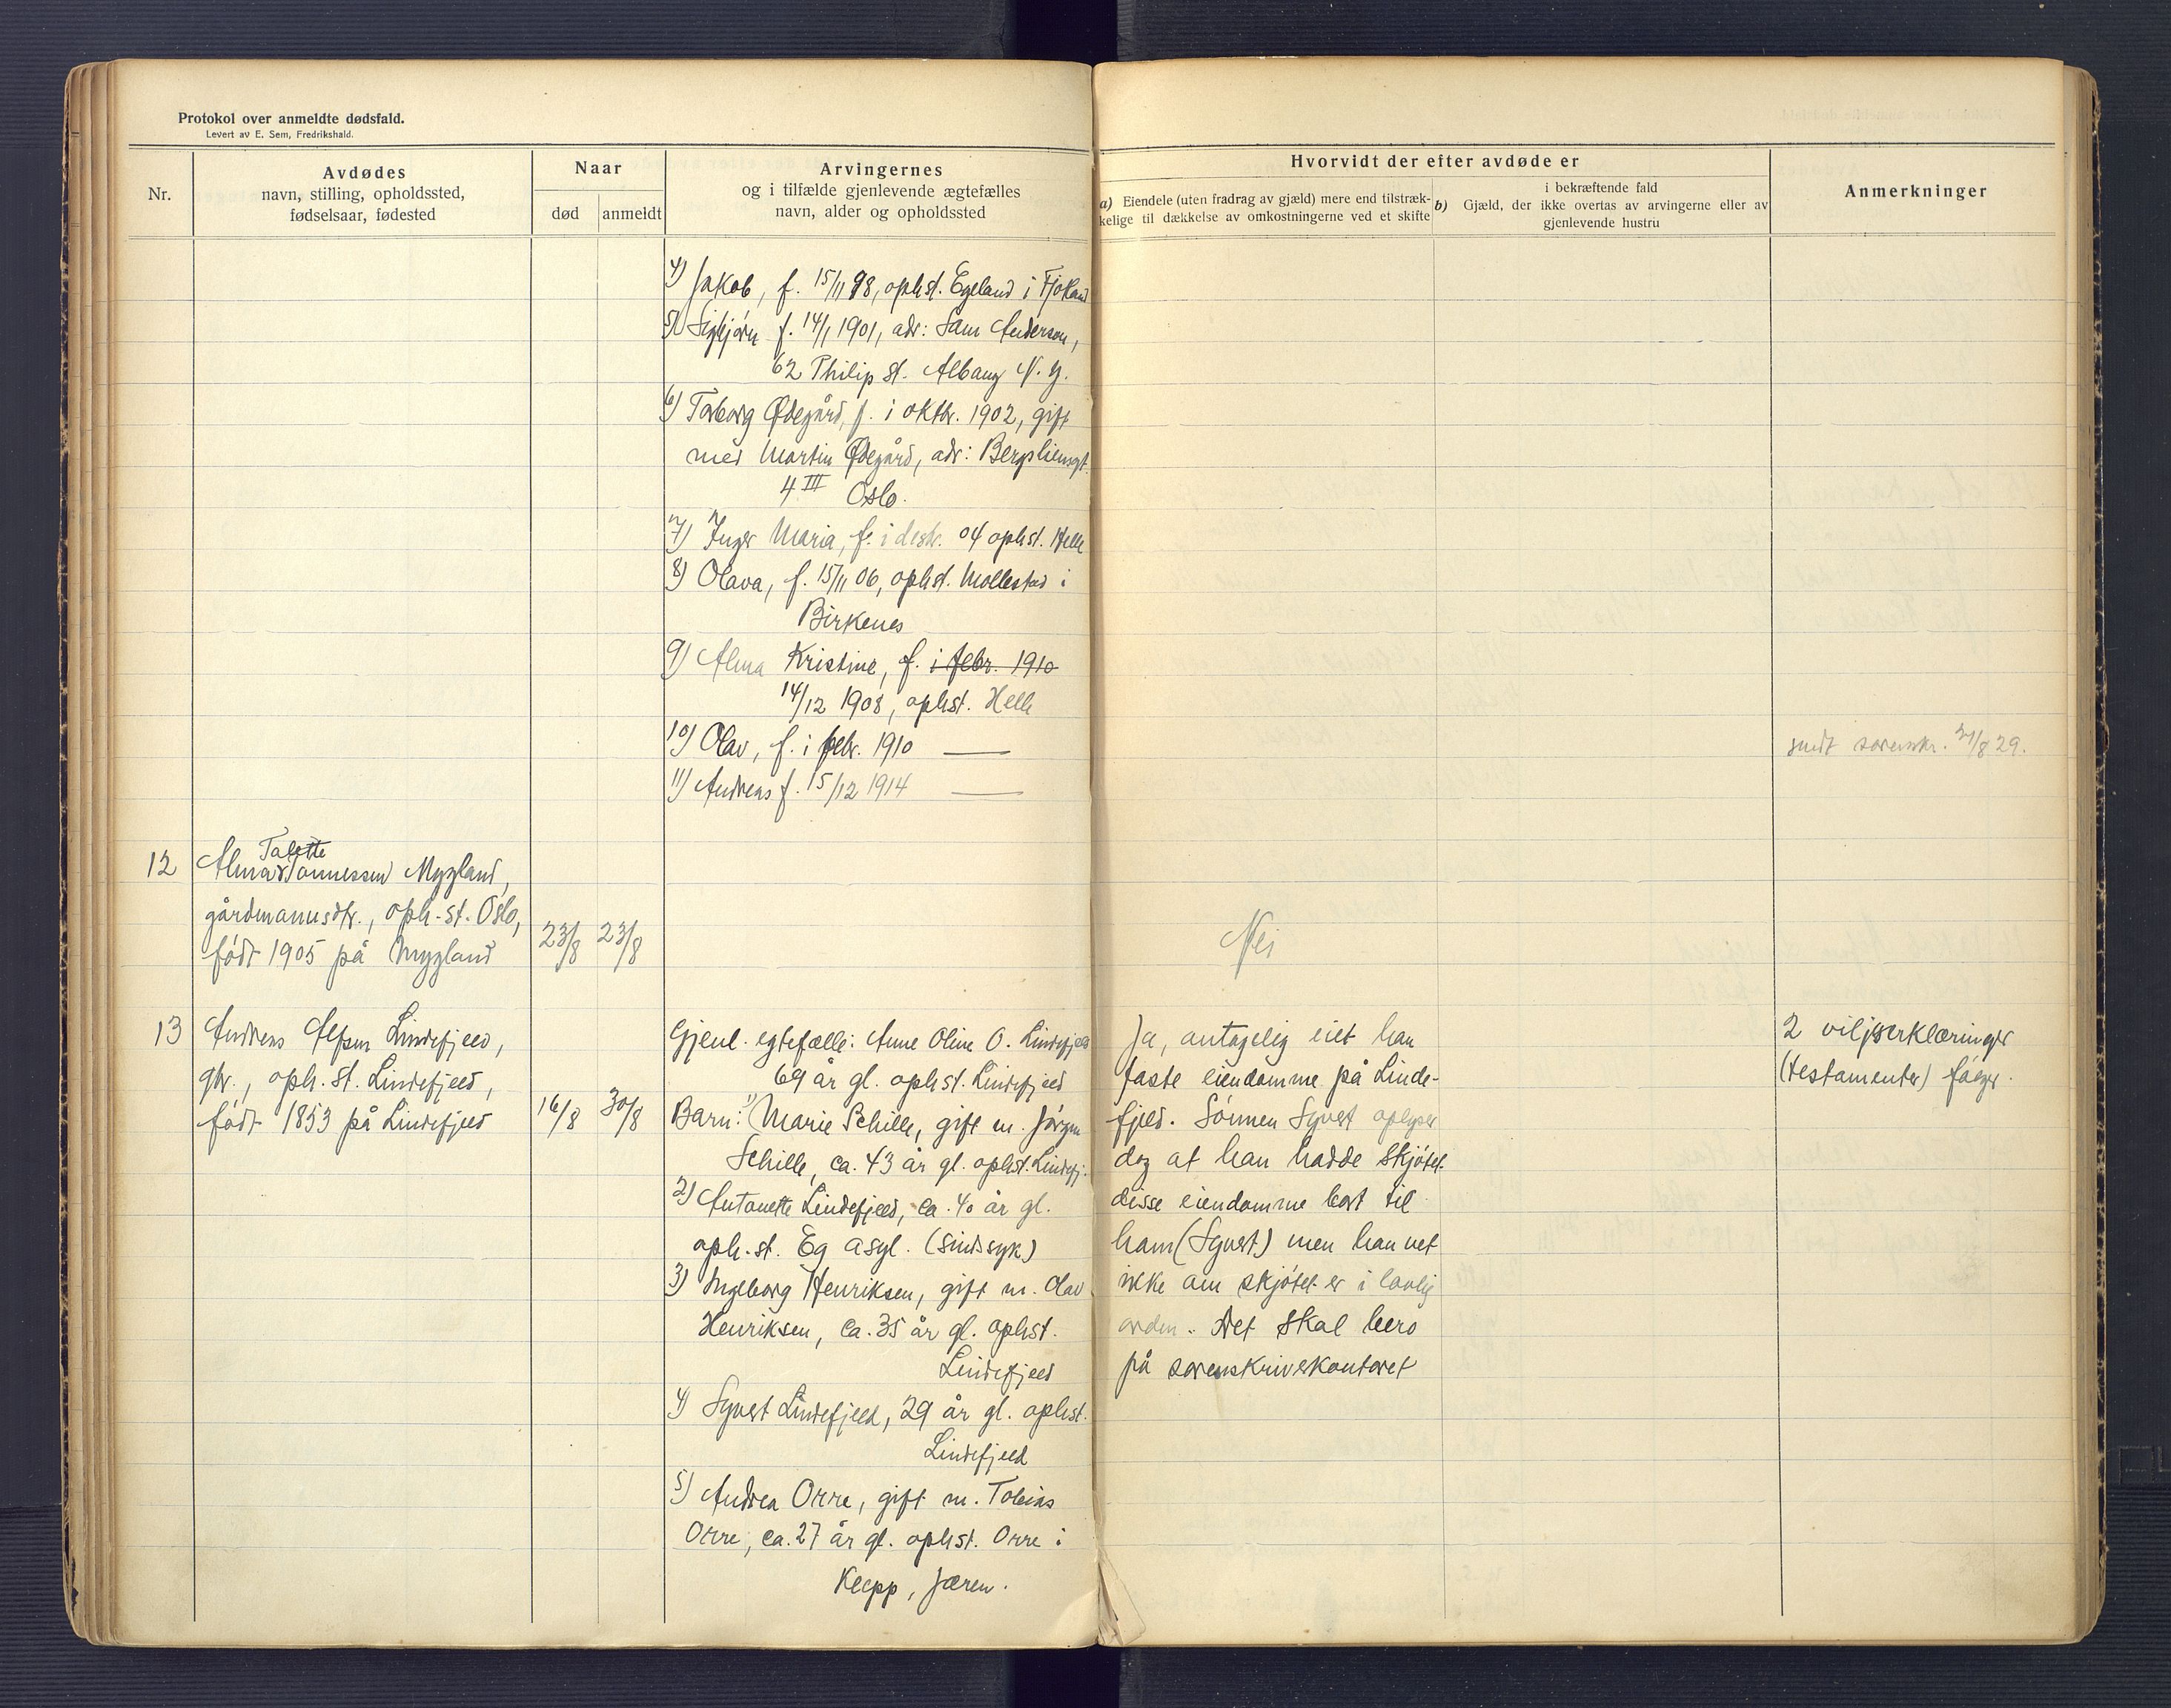 Protokol over anmeldte dødsfald.
Levert av E. Sem, Fredrikshald.
Nr.
Avdødes
navn, stilling, opholdssted,
fødselsaar, fødested
Naar
død
anmeldt
Arvingernes
og i tilfælde gjenlevende ægtefælles
navn, alder og opholdssted
Hvorvidt der efter avdøde er
a) Eiendele (uten fradrag av gjæld) mere end tilstræk-
kelige til dækkelse av omkostningerne ved et skifte
i bekræftende fald
b) Gjæld, der ikke overtas av arvingerne eller av
gjenlevende hustru
Anmerkninger
4) Jakob, f. 15/11 98, ophst. Egeland i Fjotland
5) Sigbjørn f. 14/1 1901, adr: Sam Anderson,
62 Philip st. Albany N. Y.
6) Torborg Ødegård, f. i oktbr. 1902, gift
med Martin Ødegård, adr: Bergsliensgt.
4 III Oslo.
7) Inger Maria, f. i desbr. 04 ophst. Helle
8) Olava, f. 15/11 06, ophst. Mollestad i
Birkenes
9) Alma Kristine, f. i febr. 1910
14/12 1908, ophst. Helle
10) Olav, f. i febr. 1910 —
11) Andreas f. 15/12 1914 —
sendt sorenskr. 31/8 29.
12
Talette
Alma Tønnessen Mygland,
gårdmannsdtr., oph.st. Oslo,
født 1905 på Mygland
23/8
23/8
Nei
13
Andreas Alfsen Lindefjeld,
gbr., oph. st. Lindefjeld,
født 1853 på Lindefjeld
16/8
30/8
Gjenl. egtefælle: Anne Oline O. Lindefjeld
69 år gl. ophst. Lindefjeld
Barn: 1) Marie Schille, gift m. Jørgen
Schille, ca. 43 år gl. ophst. Lindefj.
2) Antonette Lindefjeld, ca. 40 år gl.
oph.st. Eg asyl. (sindssyk)
3) Ingeborg Henriksen, gift m. Olav
Henriksen, ca. 35 år gl. ophst.
Lindefjeld
4) Syvert Lindefjeld, 29 år gl. ophst.
Lindefjeld
5) Andrea Orre, gift m. Tobias
Orre, ca. 27 år gl. ophst. Orre i
Klepp, Jæren.
Ja, antagelig eiet han
faste eiendomme på Linde-
fjeld. Sønnen Syvert oplyser
dog at han hadde skjøtet
disse eiendomme bort til
ham (Syvert) men han vet
ikke om skjøtet er i lovlig
orden. Det skal bero
på sorenskriverkontoret
2 viljeserklæringer
(testamenter) følger.